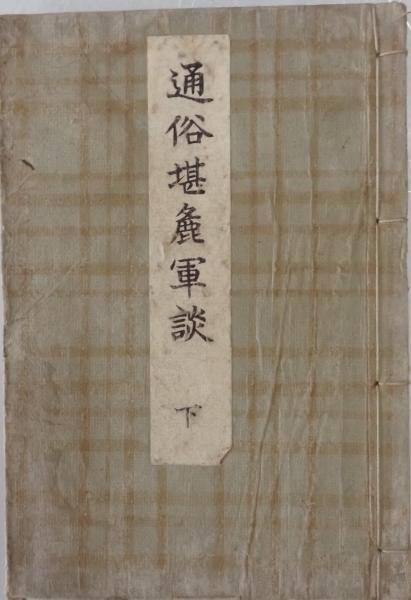 通俗堪麁軍談
下